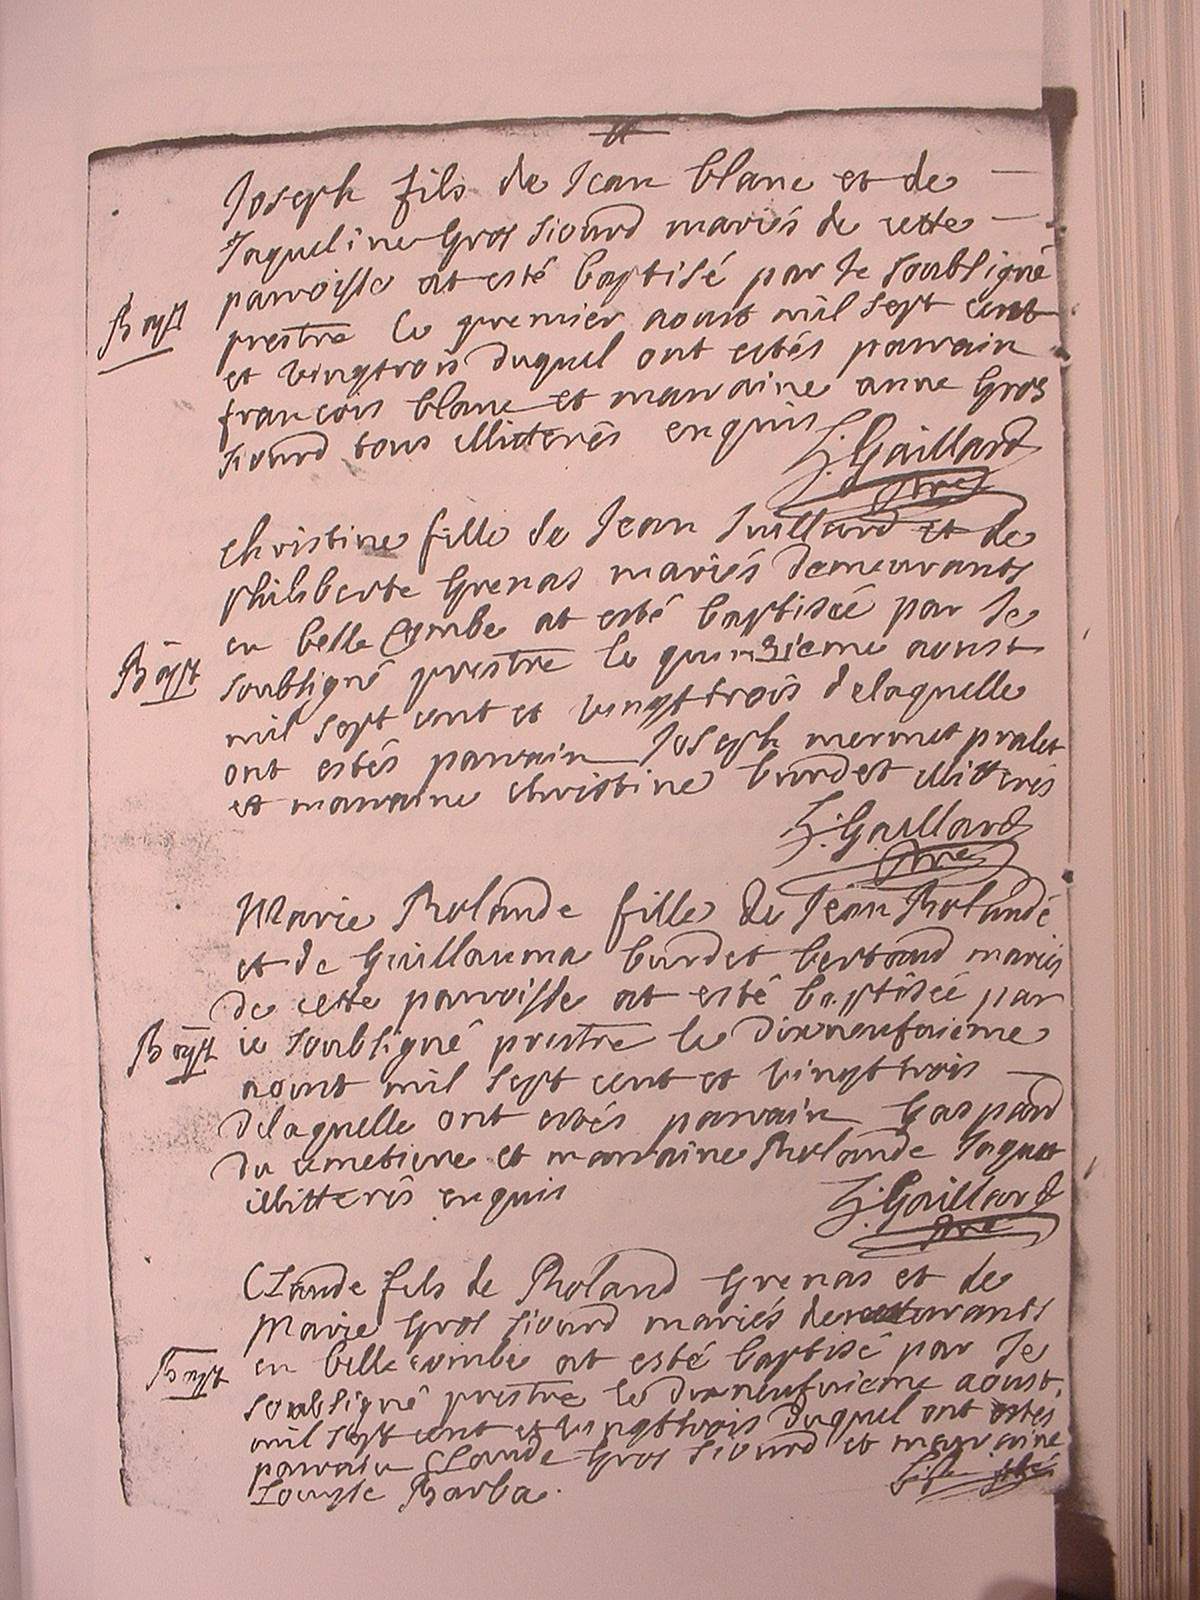 Joseph fils de Jean blanc et de
Jaqueline Gros Siourd mariés de cette
parroisse at esté baptisé par le soubsigné
Bapt
prestre le premier aoust mil sept cent
et vingtrois duquel ont estés parrain
francois blanc et marraine anne Gros
Siourd tous illitterés enquis
Gaillard
pre
christine fille de Jean Juillard et de
philiberte Grenas mariés demeurants
en belle Combe at esté baptiseé par le
Bapt
soubsigné prestre le quinzieme aoust
mil sept cent et vingttrois delaquelle
ont estés parrain Joseph mermet pralet
et marraine christine burdet illitterés
Gaillard
pre
Marie Rolande fille de Jean Rolande
et de Guillauma burdet bertrand mariés
de cette parroisse at esté baptiseé par
Bapt
le soubsigné prestre le dixneufuieme
aoust mil sept cent et vingttrois
delaquelle ont estés parrain Gaspard
du cmetiere et marraine Rolande Jaquet
illitterés enquis
Gaillard
pre
Claude fils de Roland Grenas et de
Marie Gros Siourd mariés demeurants
en belle combe at esté baptisé par le
Bapt
soubsigné prestre le dixneufuieme aoust
mil sept cent et vingttrois duquel ont estés
parrain Claude Gros Siourd et marraine
Louyse Barba.